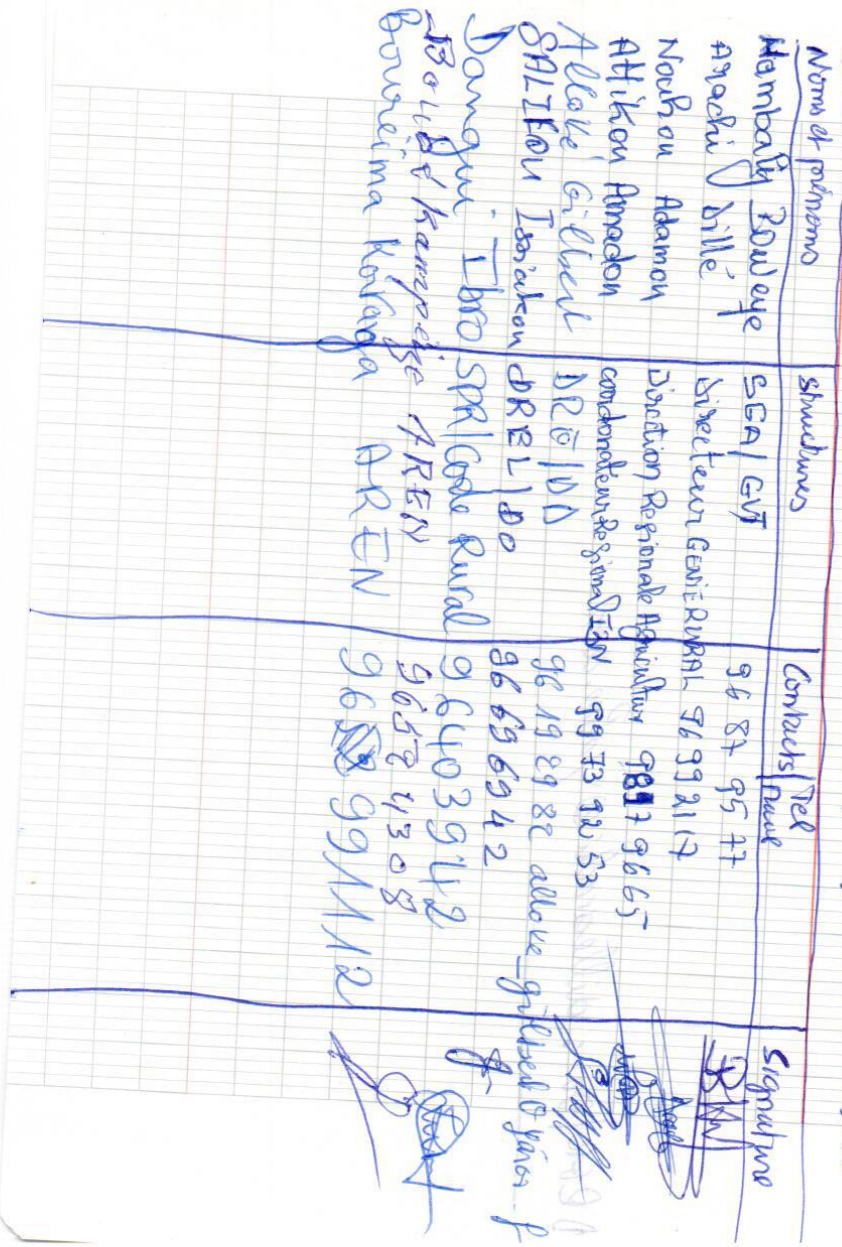 Noms et prénoms structures Contacts/Tel mail Signature
Mambally Boweye SGA/GVT 96 87 95 77
Arachi Dillé Directeur GENIE RURAL 96 99 21 17
Nouhou Adamou Direction Regionale Agriculture 98 17 96 65
Attikou Amadou coordonateur Regional I3N 99 73 92 53
Alloké Gilbert 96 19 29 82
SALIFOU Issiakou DREL/DO 96 69 69 42
Dangui Ibro SPR/Code Rural 96 40 39 42
AREN 96 57 43 08
Boureima AREN 96 99 11 12